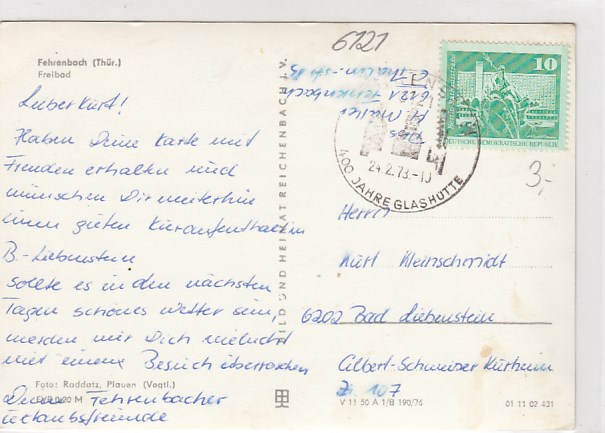 Fehrenbach (Thür.)
Freibad
Lieber Kurt!
Haben Deine Karte mit
Freuden erhalten und
wünschen Dir weiterhin
einen guten Kuraufenthalt in
B.-Liebenstein
sollte es in den nächsten
Tagen schönes Wetter sein,
werden wir Dich vielleicht
mit einem Besuch überraschen
Deine Fehrenbacher
Urlaubsfreunde
Foto: Raddatz, Plauen (Vogtl.)
EVP 0,20 M
BILD UND HEIMAT REICHENBACH I. V.
6121
10
DEUTSCHE DEMOKRATISCHE REPUBLIK
6121 Fehrenbach
400 JAHRE GLASHÜTTE
24.2.78.-10
3,-
Herrn
Kurt Kleinschmidt
6202 Bad Liebenstein
Albert-Schweizer Kurheim
Zi 107
V 11 50 A 1/B 190/76
01 11 02 431